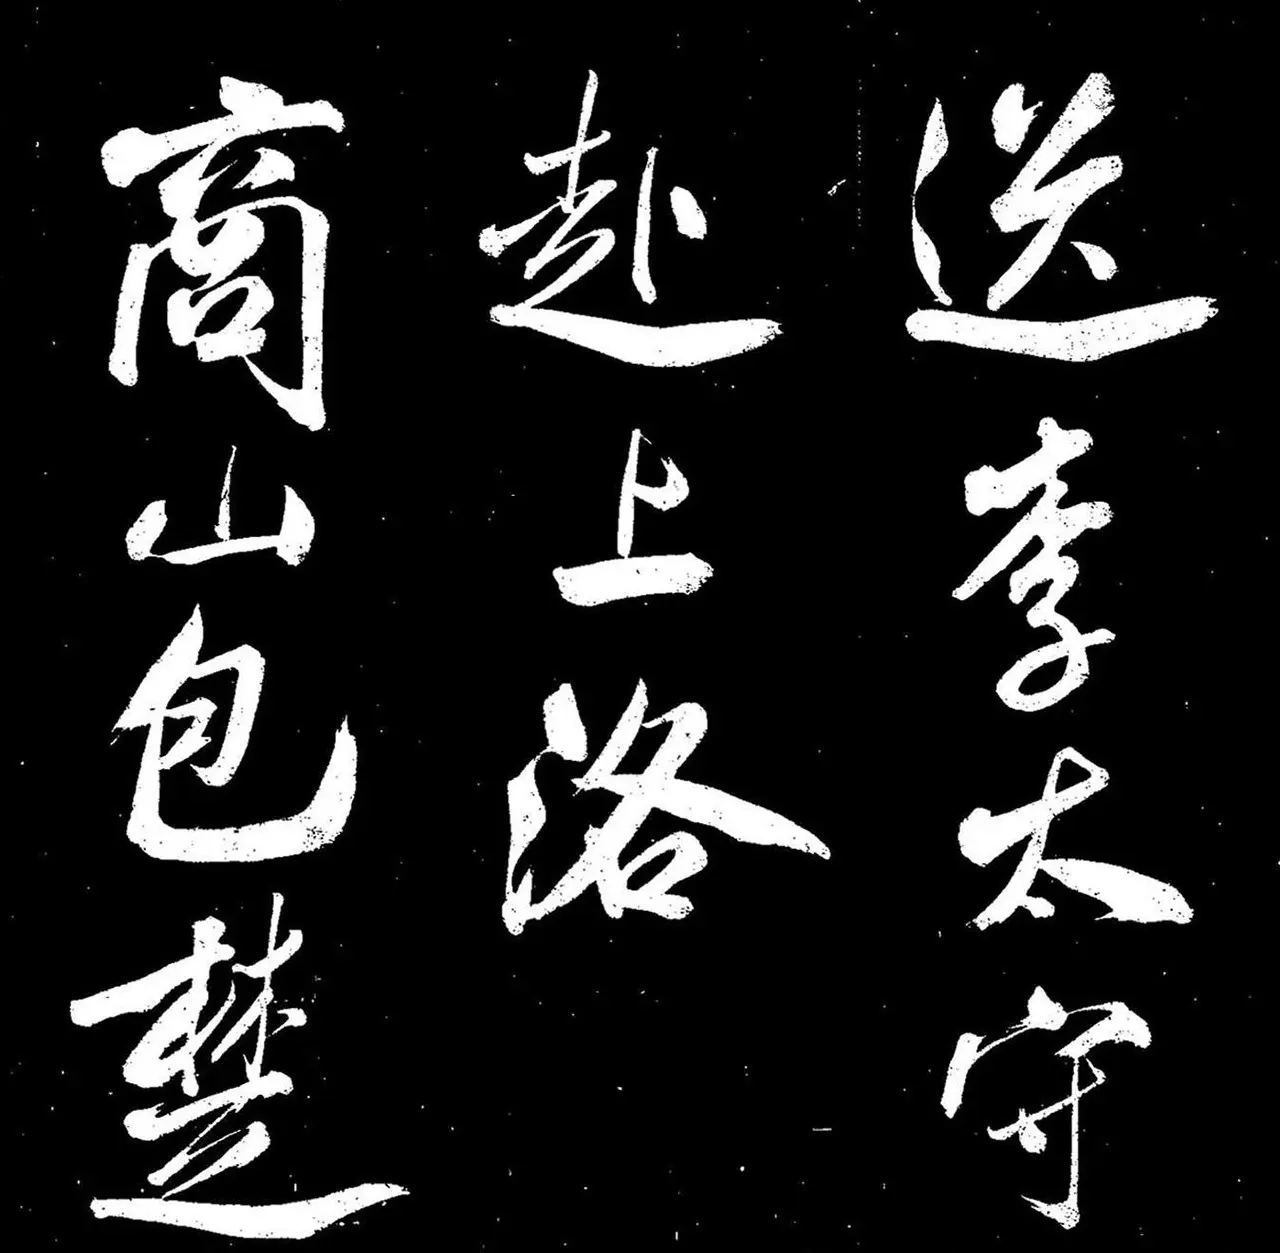 送李太守
赴上洛
商山包楚